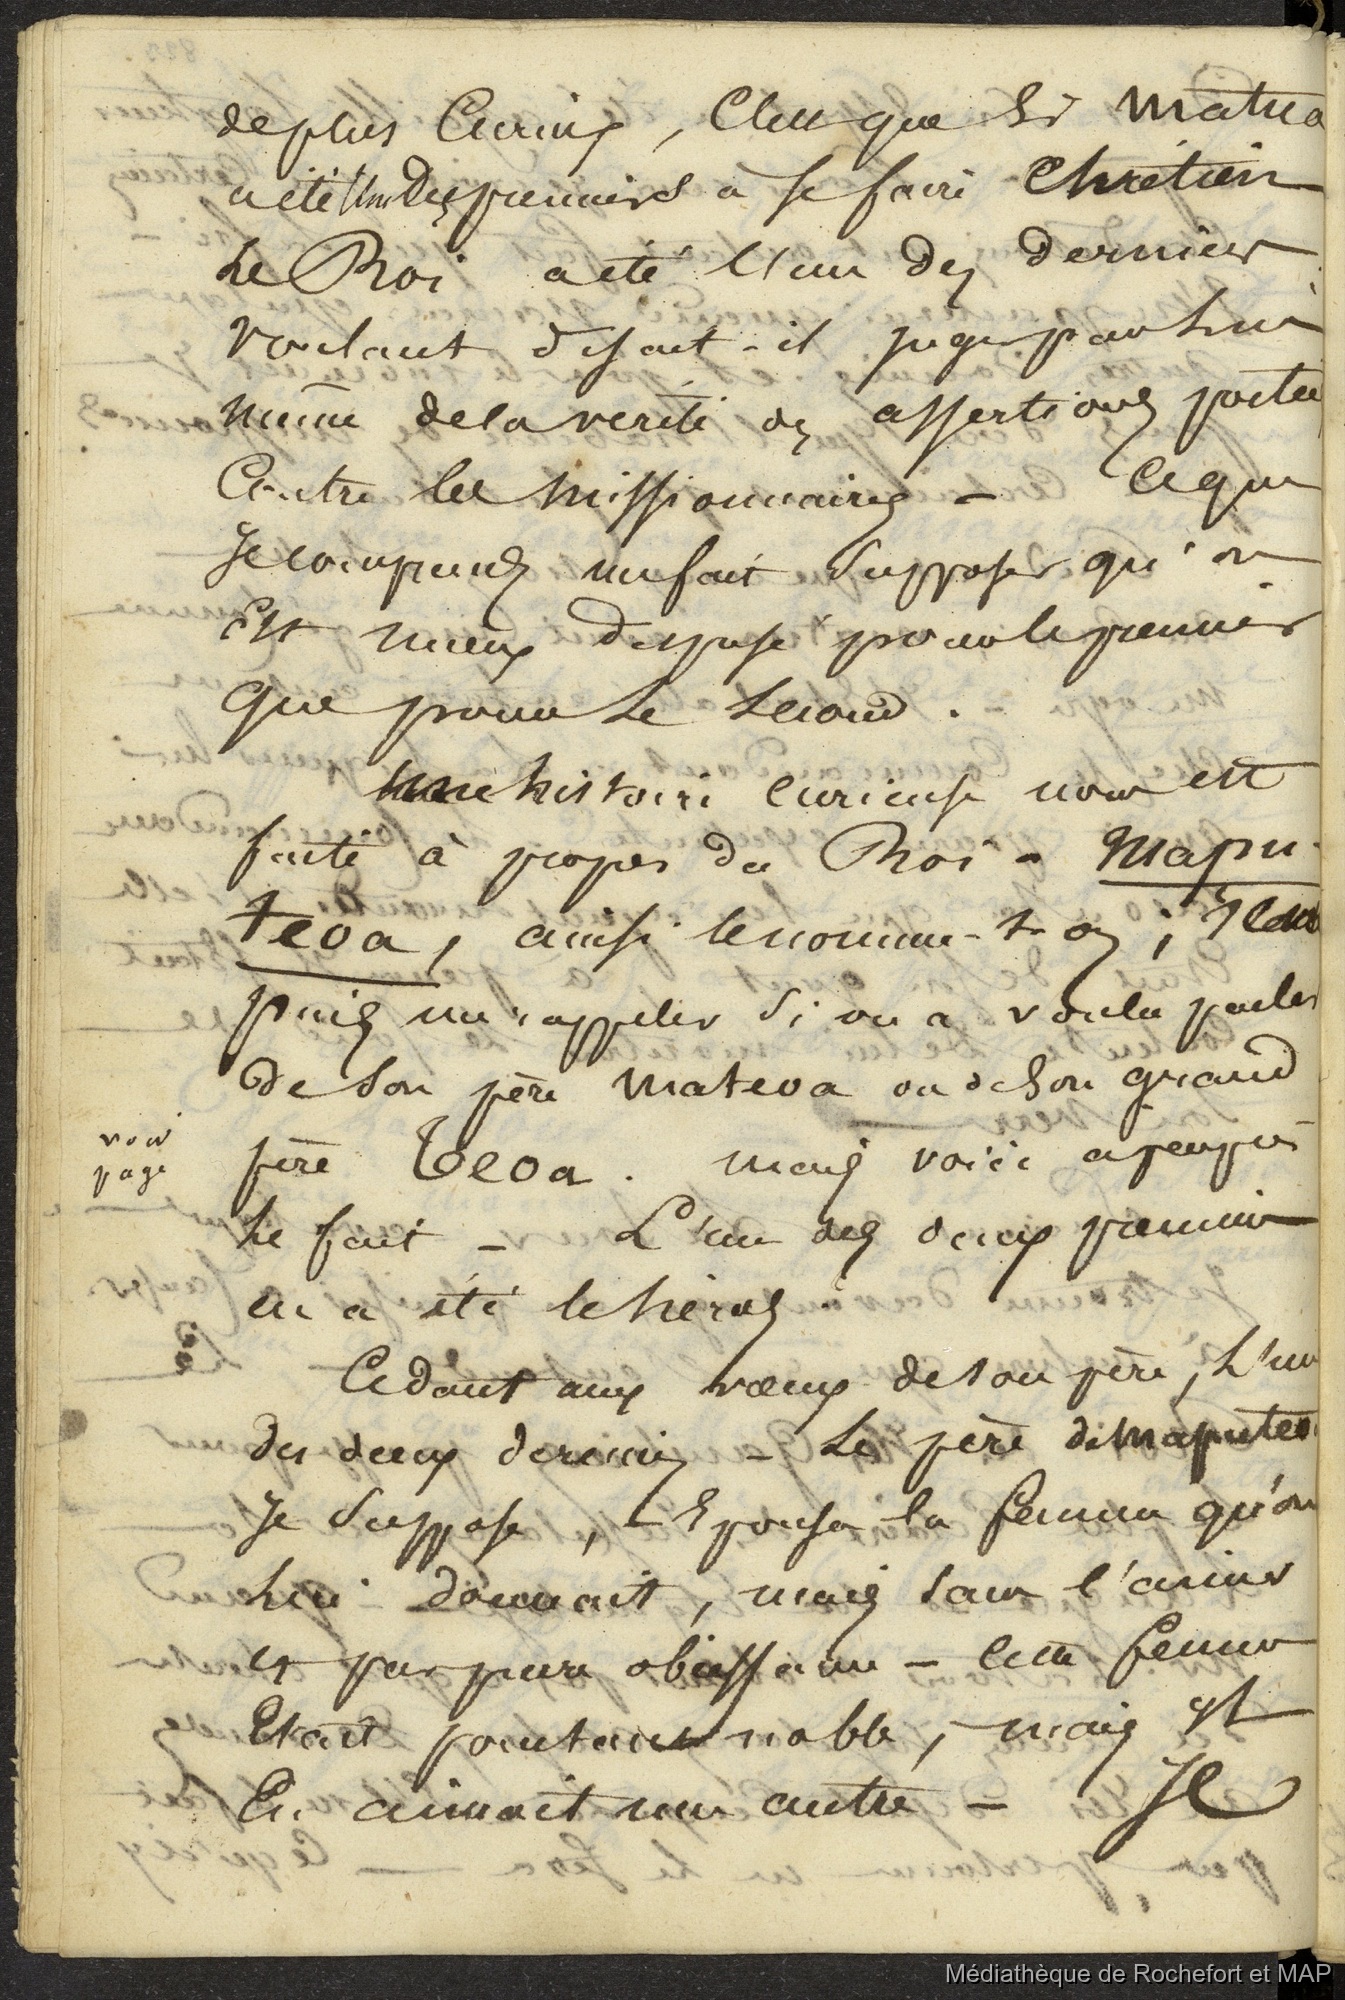 de plus Curieux, C'est que si Matua
a été l'un des premiers à se faire Chrétien
Le Roi a été l'un des derniers
voulant disait-il juger par lui
même de la vérité des assertions portées
Contre les missionnaires – Ce que
Je comprends me fait supposer qu'on
Est mieux disposé pour le premier
que pour le second.
Une histoire curieuse nous est
faite à propos du Roi – Mapu-
teoa, ainsi le nomme-t-on ; Je ne
puis me rappeler si on a voulu parler
de son père Mateoa ou de son grand
voir
page
père Teoa. mais voici a peu près
le fait – L'un des deux premiers
en a été le héros.
Cédant aux vœux de son père, L'un
des deux derniers – Le père de Maputeo
Je suppose, – Épousa la femme qu'on
lui donnait, mais sans l'aimer
et par pure obéissance – cette femme
Etait pourtant noble, mais
En aimait une autre – Il
Médiathèque de Rochefort et MAP